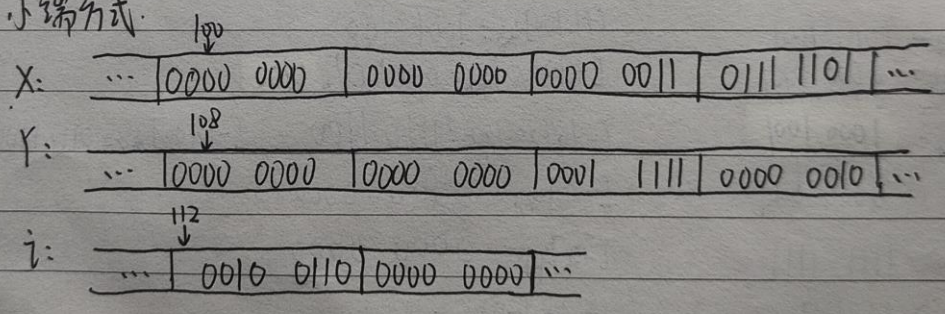 小端方式.
100
X: ... 0000 0000 0000 0000 0000 0011 0111 1101 ...
108
Y: ... 0000 0000 0000 0000 0001 1111 0000 0010 ...
112
i: ... 0010 0110 0000 0000 ...